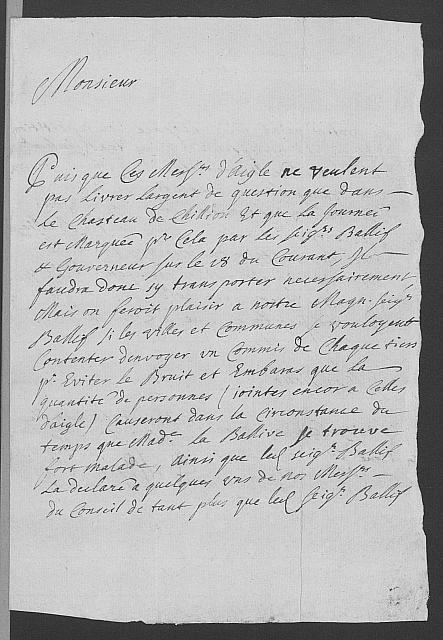 Monsieur
Puisque Ces Mess.rs d'aigle ne veulent
pas Livrer Largent de question que dans
Le Chasteau de Chillion Et que La Journeé
est Marqueé p.r Cela par Les Seig.rs Ballif
& Gouverneur sur le 18 du Courant, Il
faudra donc sy transporter necessairement
Mais on feroit plaisir a nostre Magn. Seig.r
Ballif si les villes et Communes se vouloyent
Contenter denvoyer vn Commis de Chaque tiers
p.r Eviter Le Bruit et Embaras que La
quantité de personnes (jointes encor a Celles
d'aigle) Causeront dans La Circonstance du
temps que Mad.e La Ballive se trouve
fort malade, ainsi que led. Seig.r Ballif
La declaré a quelques vns de nos Mess.rs
du Conseil de tant plus que led. Seig.r Ballif